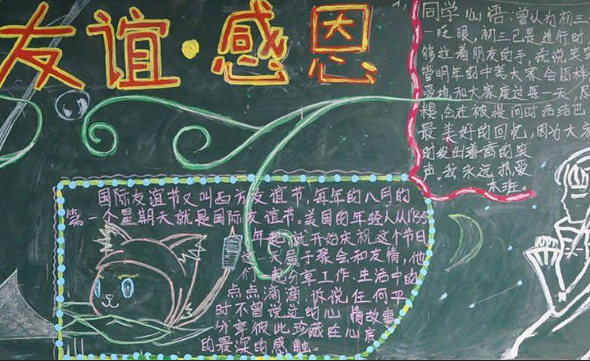 友谊·感恩
同学心语:曾以为初三
一眨眼,初三已是进行时
修拉着朋友的手,说说笑
管明年的中考大家会怎样
爱地和大家度过每一天
模,会在被提问时结结巴
最美好的回忆,因为大家
的发出善意的笑
声,我永远热爱
本班。
国际友谊节又叫西方友谊节,每年的八月的
第一个星期天就是国际友谊节。美国的年轻人从1935
年起,就开始庆祝这个节日
天属于聚会和友情,他
们一起分享工作、生活中的
点点滴滴,诉说任何平
时不曾说过的心情故事
分享彼此珍藏在心底
的最深的感触。